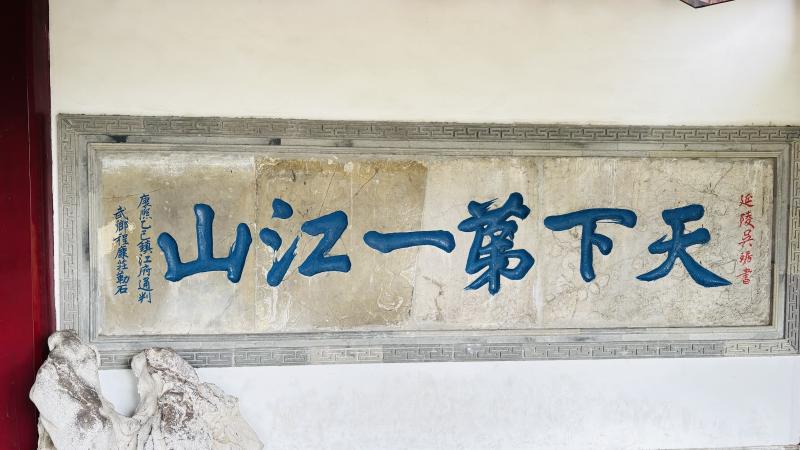 延陵吳琚書
天下第一江山
康熙乙巳鎮江府通判
武鄉程康莊勒石